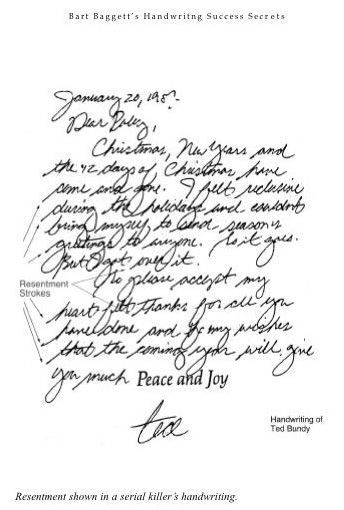 Bart Baggett's Handwritng Success Secrets
January 20, 198?-
Dear
Christmas, New Years and
the 42 days of Christmas have
come and gone. I felt reclusive
during the holidays and couldn't
bring myself to send season's
greetings to anyone. So it goes.
But I got over it.
So please accept my
Resentment
Strokes
heart felt thanks for all you
have done and for my wishes
that the coming year will give
you much Peace and Joy
ted
Handwriting of
Ted Bundy
Resentment shown in a serial killer's handwriting.